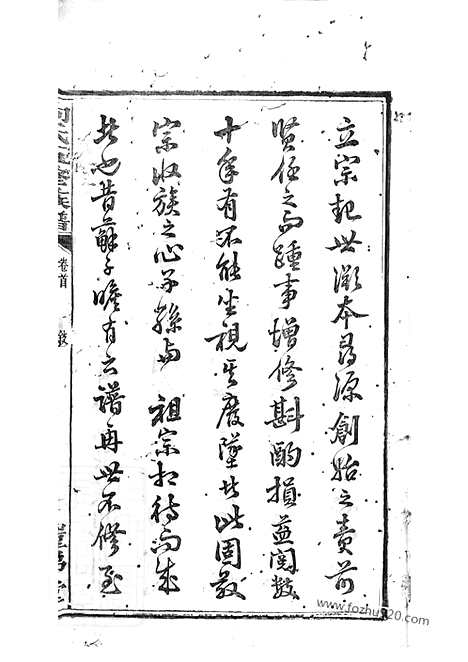 立宗起世溯本尋源創始之責前
賢任之而踵事增修斟酌損益閱數
十年有不能坐視其廢墜者此固敬
宗收族之心子孫與祖宗相待而成
者也昔蘇子瞻有云譜再世不修至
卷首
www.fozhu920.com